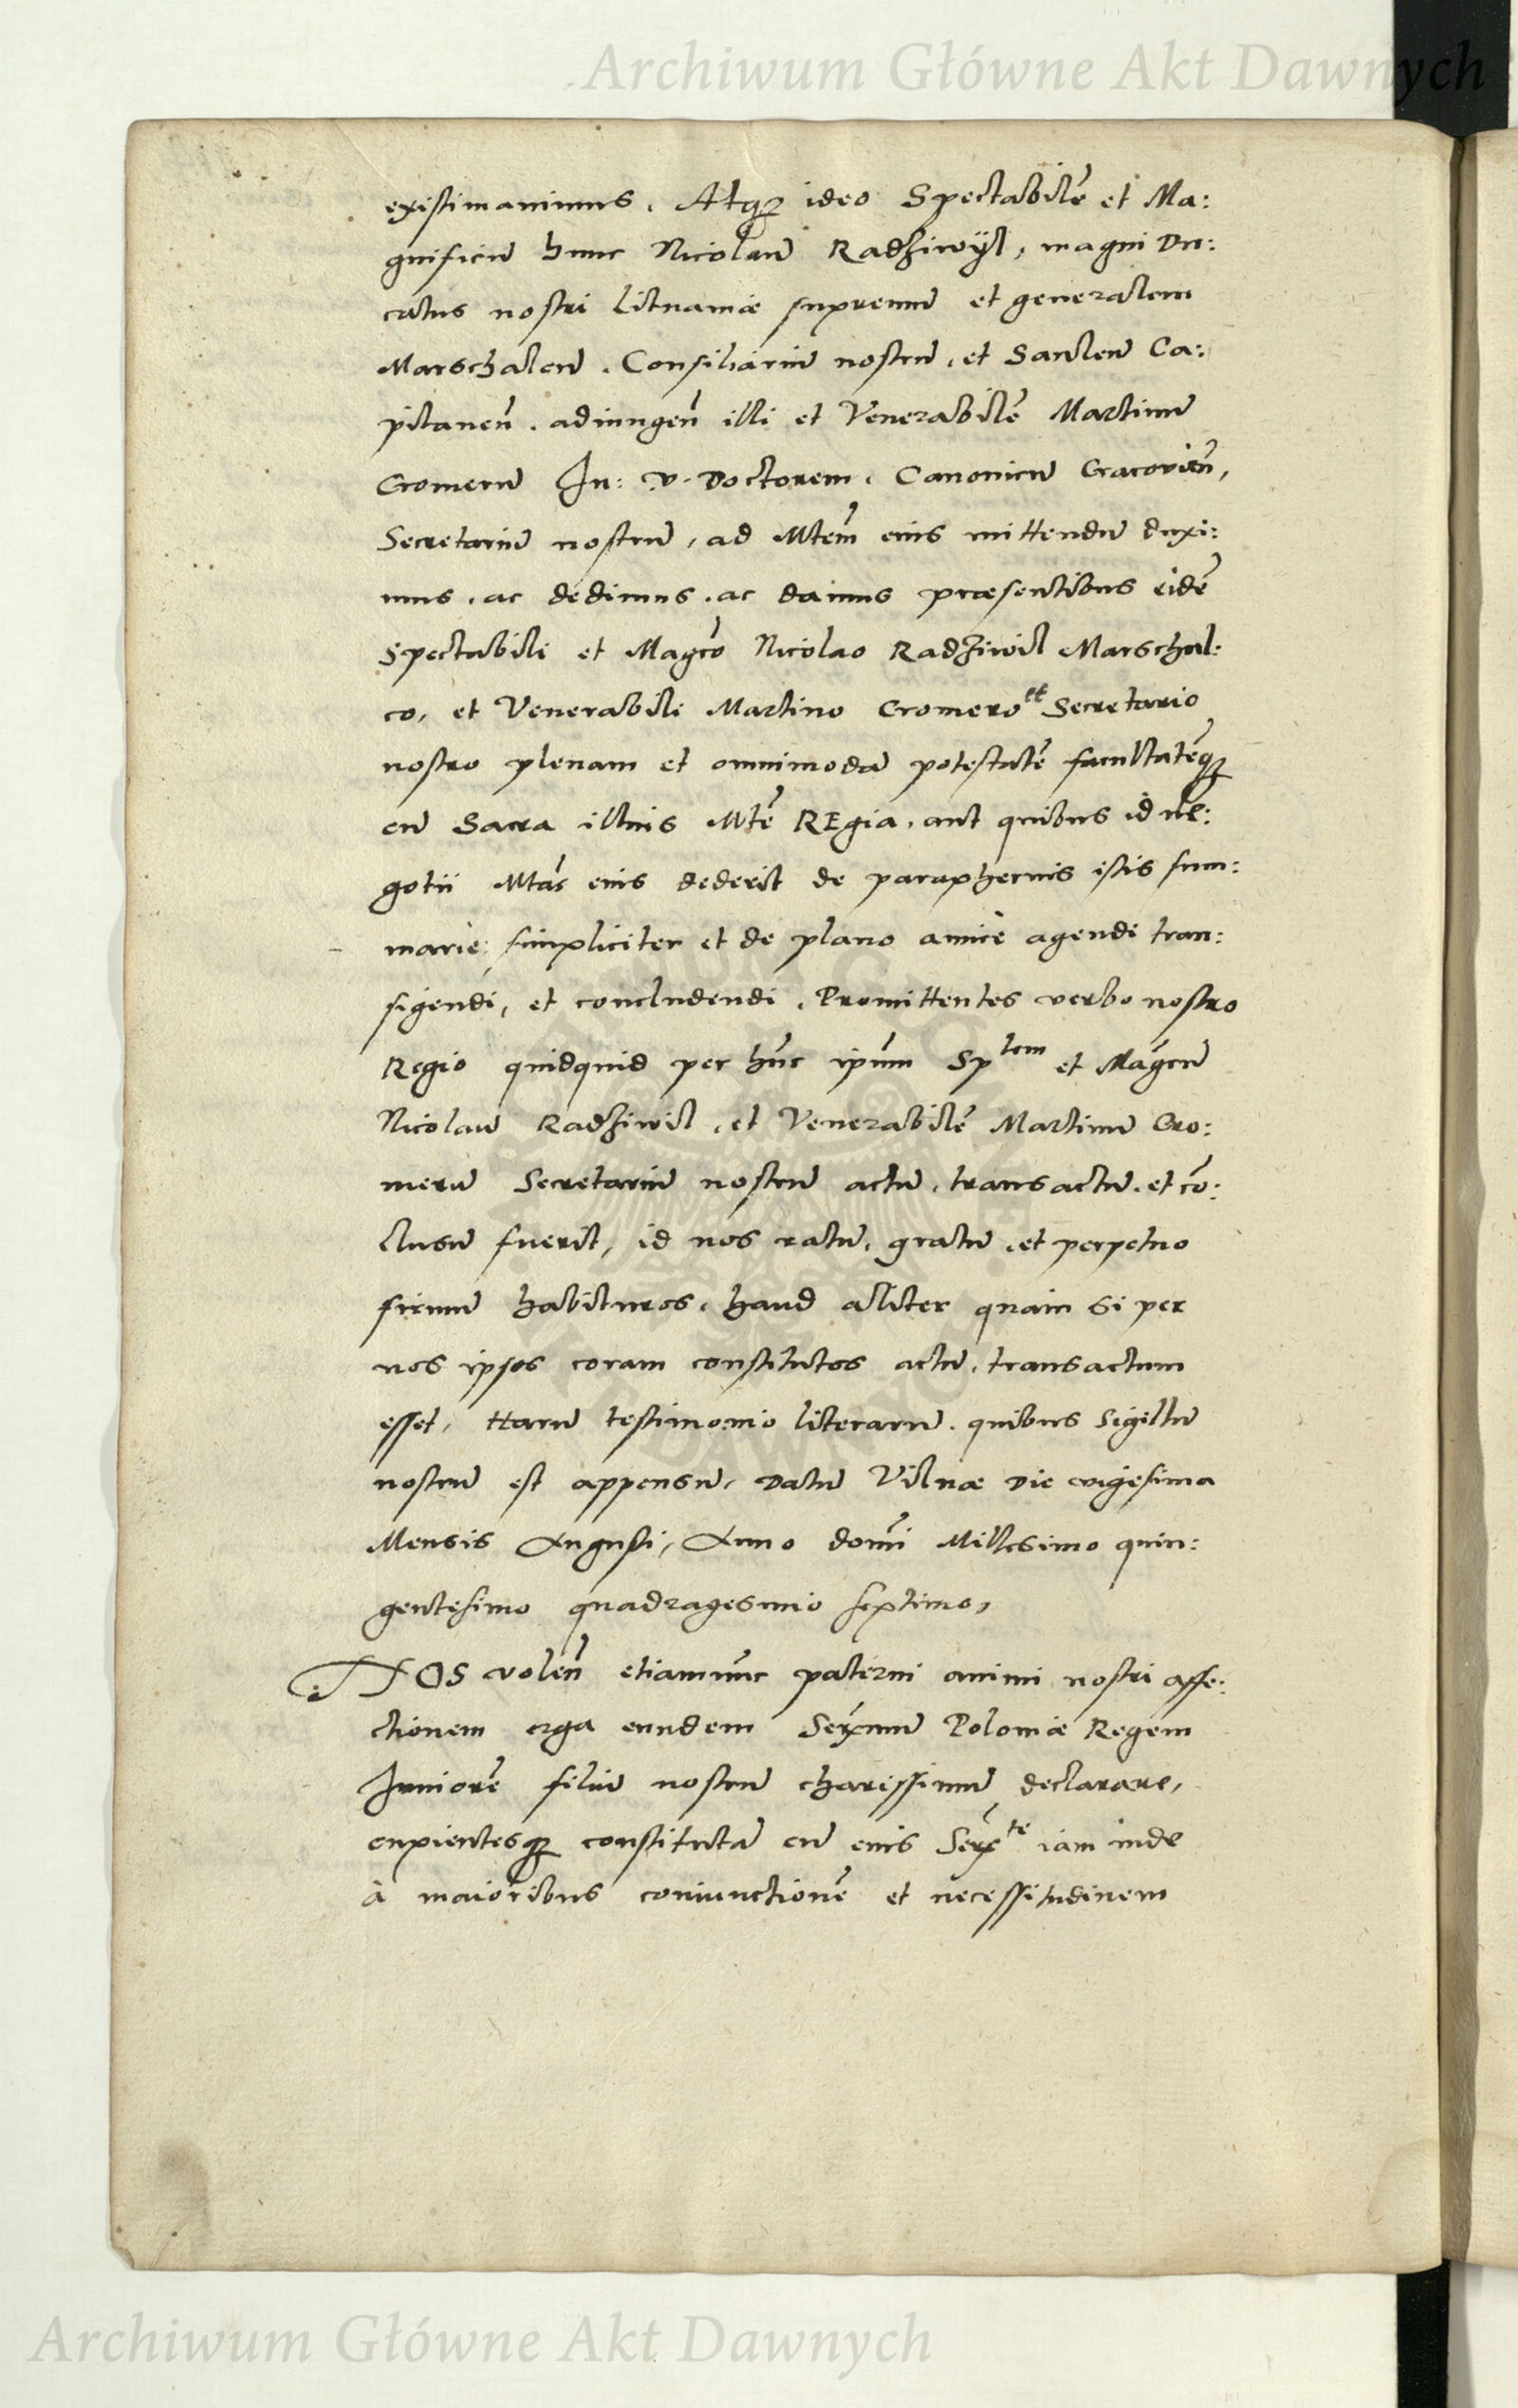 Archiwum Główne Akt Dawnych
existimavimus. Atq; ideo Spectabilē et Ma:
gnificū hunc Nicolaū Radziwÿl, magni Du:
catus nostri Lituaniæ supremū et generalem
Marschalcū. Consiliariū nostrū, et Saulen̄ Ca:
pitaneū. adiungen̄ illi et Venerabilē Martinū
Cromerū Iu: V. Doctorem. Canonicū Cracovien̄,
Secretariū nostrū, ad Mtem̄ eius mittendū duxi:
mus. ac dedimus. ac damus præsentibus eidē
Spectabili et Magco̅ Nicolao Radziwil Marschal:
co, et Venerabili Martino Cromero et Secretario
nostro plenam et omnimodā potestatē facultatēq;
cū Sacra illius Mte̅ REgia. aut quibus id ne:
gotii Mtas̅ eius dederit de paraphernis istis sum:
marie: simpliciter et de plano amice agendi tran:
sigendi, et concludendi. Promittentes verbo nostro
Regio quidquid per hūc ipūm Sp tem et Magcū
Nicolaū Radziwil, et Venerabilē Martinū Cro:
merū Secretariū nostrū actū, transactū. et cō:
clusū fuerit, id nos ratū, gratū, et perpetuo
firmū habituros. haud aliter quam si per
nos ipsos coram constitutos actū, transactum
esset, Harū testimonio literarū. quibus Sigillū
nostrū est appensū, Datū Vilnæ Die vigesima
Mensis Augusti, Anno domi̅ Millesimo quin:
gentesimo quadragesimo septimo,
NOS volen̄ etiamnūc paterni animi nostri affe:
ctionem erga eundem Serxmū Poloniæ Regem
Iuniorē filiū nostrū charissimū declarare,
cupientesq; constitutā cū eius Serx te iam inde
à maioribus coniunctionē et necessitudinem
Archiwum Główne Akt Dawnych